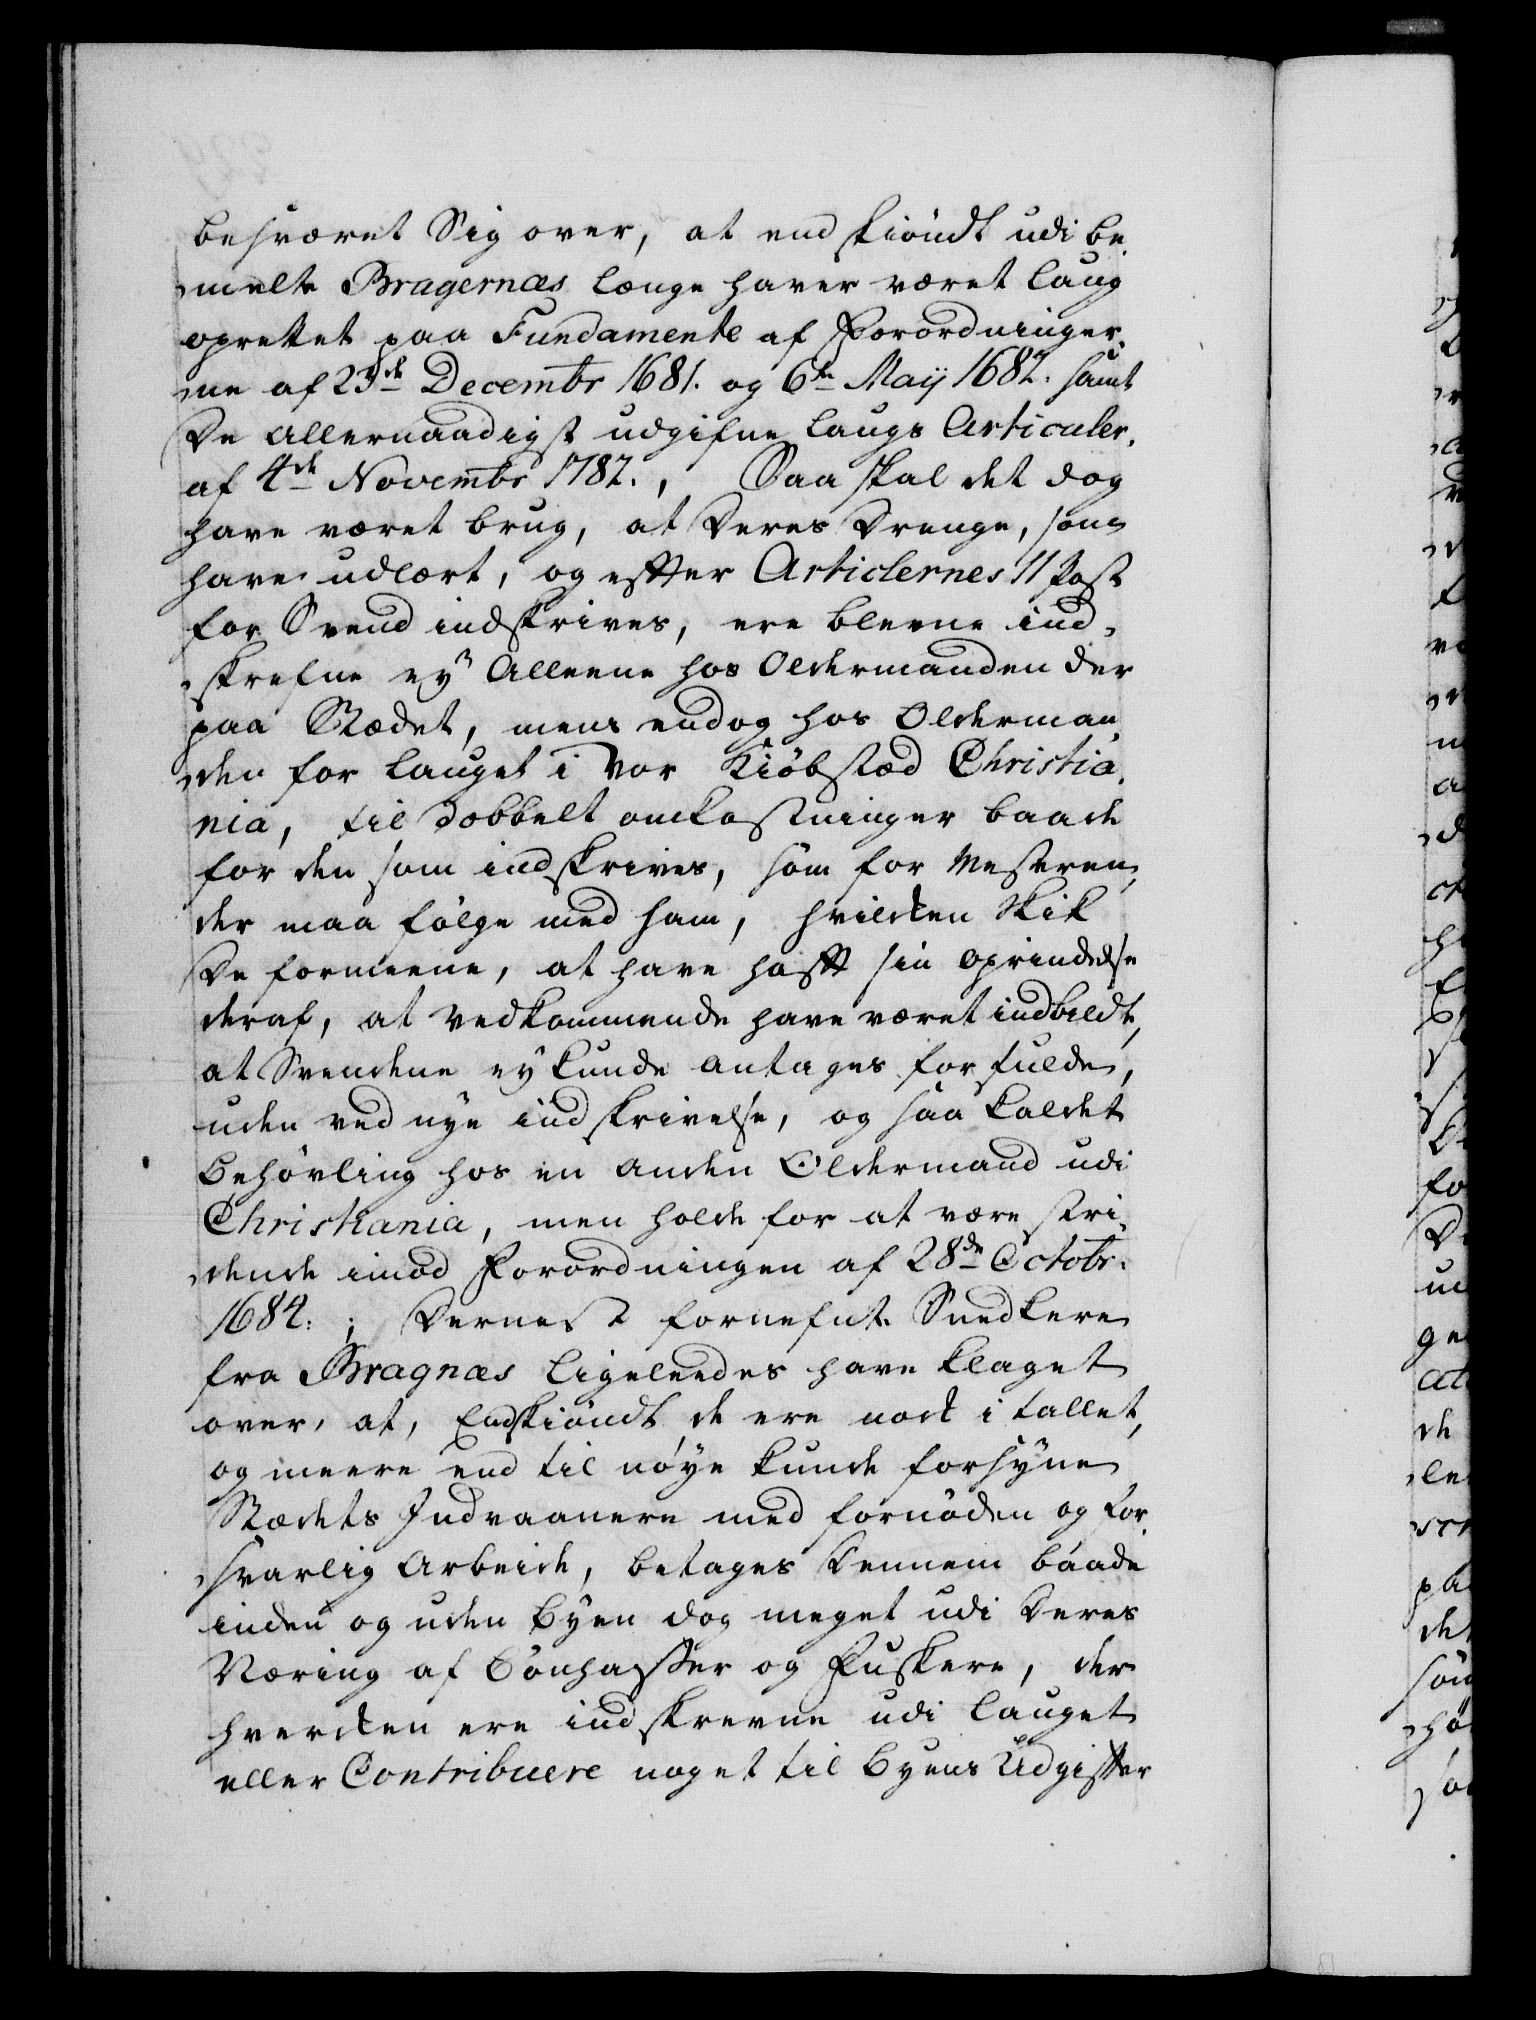 besværet Sig over, at end skiöndt udi be,
,melte Bragernæs længe haver været laug
oprettet paa Fundamente af Forordninger,
,ne af 23de Decembr 1681. og 6te Maij 1682. samt
De allernaadigst udgifne laugs Articuler,
af 4de Novembr 1782., Saa skal det dog
have været brug, at Deres Drenge, som
have udlært, og effter Articlernes 11 Post
for Svend indskrives, ere blevne ind,
,skrefne ey Alleene hos Oldermanden der
paa Stædet, mens endog hos Olderman,
,den for lauget i Vor Kiöbstæd Christia,
nia, til dobbelt omkostninger baade
for den som indskrives, som for Mesteren,
der maa fölge med ham, hvilcken Skik
De formeene, at have hafft sin oprindelse
deraf, at Vedkommende have været indbildt,
at Svendene ey kunde antages for fulde,
uden ved nye indskrivelse, og saa kaldet
Behövling hos en anden Oldermand udi
Christiania, men holde for at være stri,
,dende imod Forordningen af 28de Octobr.
1684. ; Dernest fornefnte Snedkere
fra Bragnæs ligeleedes have klaget
over, at, Endskiöndt de ere nock i tallet,
og meere end til nöye kunde forsyne
Stædets Indvaanere med fornöden og for,
,svarlig Arbeide, betages Dennem baade
inden og uden Byen dog meget udi Deres
Næring af Bönhasser og Fuskere, der
hvercken ere indskrevne udi lauget
eller Contribuere noget til Byens Udgiffter